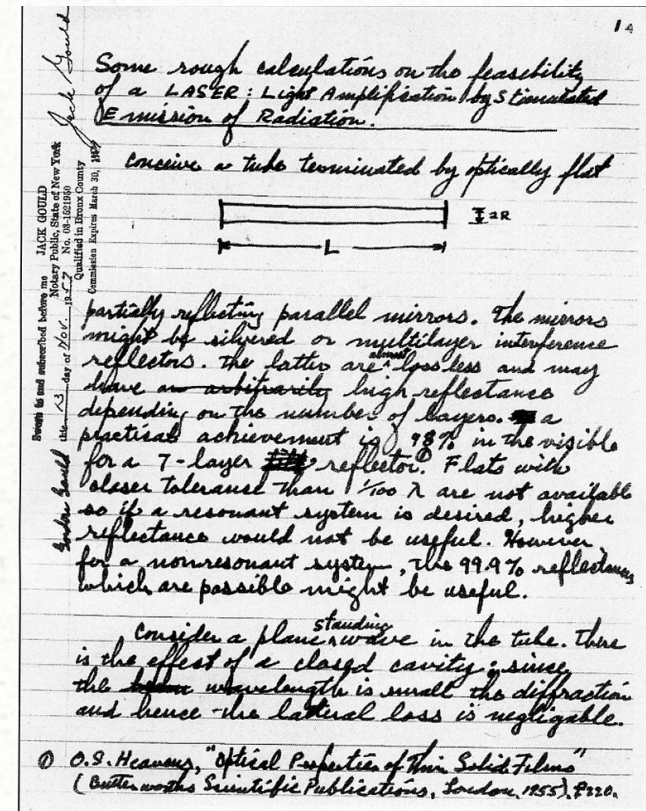 14
Some rough calculations on the feasibility
of a LASER: Light Amplification by Stimulated
Emission of Radiation.
conceive a tube terminated by optically flat
2R
L
partially reflecting parallel mirrors. The mirrors
might be silvered or multilayer interference
reflectors. The latter are almost lossless and may
have an arbitrarily high reflectance
depending on the number of layers. a
practical achievement is 98% in the visible
for a 7-layer reflector.① Flats with
closer tolerance than 1/100 λ are not available
so if a resonant system is desired, higher
reflectance would not be useful. However,
for a nonresonant system, the 99.9% reflectances
which are possible might be useful.
Consider a plane standing wave in the tube. There
is the effect of a closed cavity; since
the wavelength is small the diffraction
and hence the lateral loss is negligable.
① O.S. Heavens, "Optical Properties of Thin Solid Films"
(Butterworths Scientific Publications, London, 1955), P220.
Jack Gould
Sworn to and subscribed before me
this 13 day of Nov. 1957
Gordon Gould
JACK GOULD
Notary Public, State of New York
No. 03-1521950
Qualified in Bronx County
Commission Expires March 30,